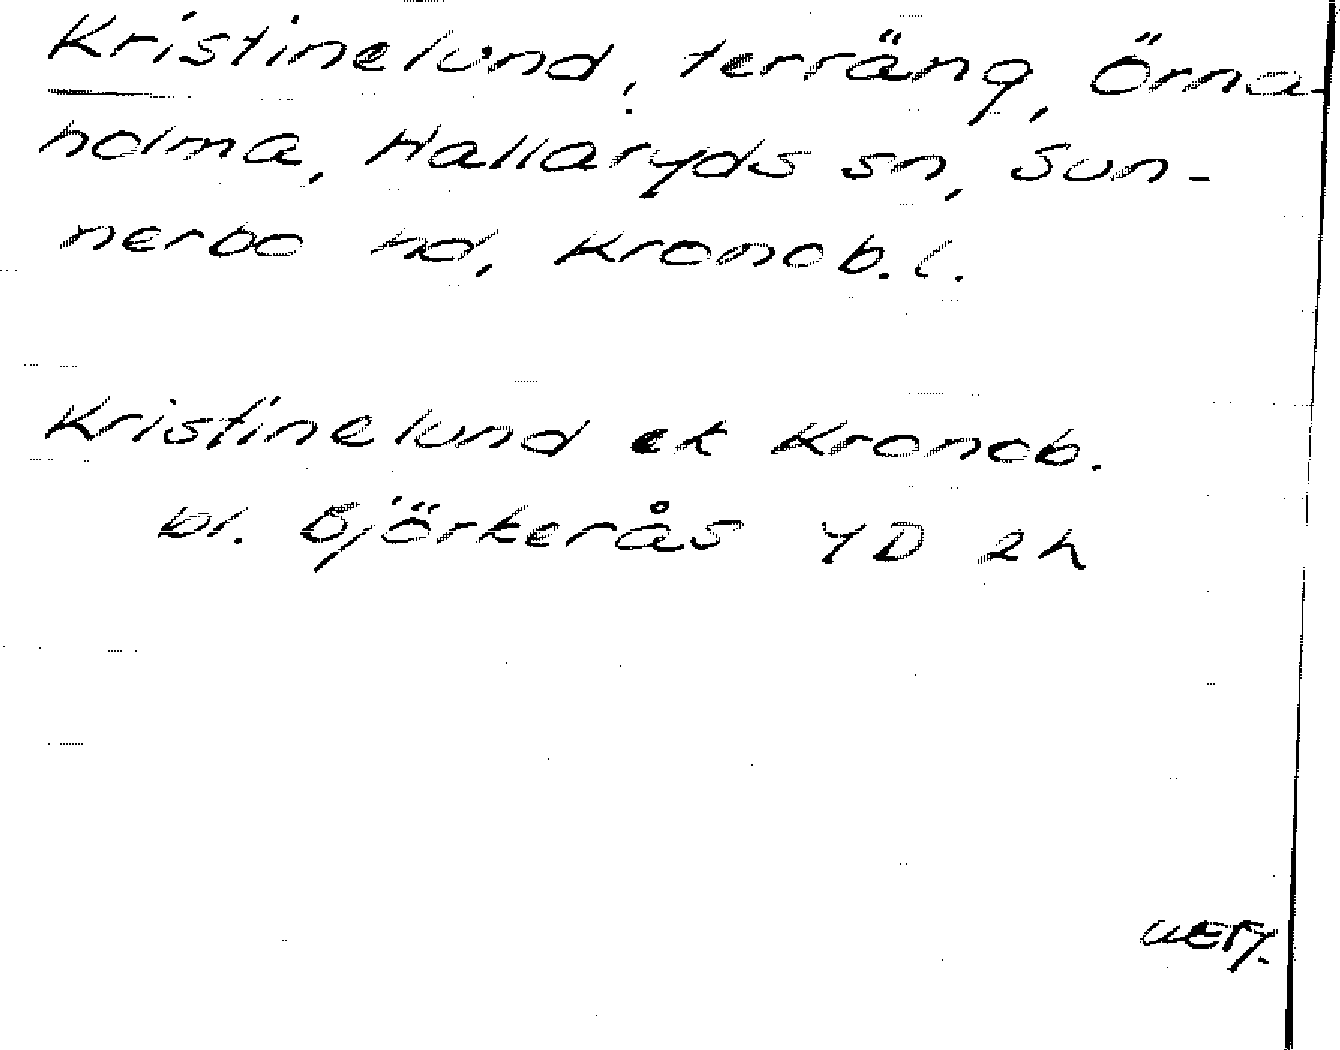 Kristinelund, terräng, Örna-
holma, Hallaryds sn, Sun-
nerbo hd, Kronob. l.
Kristinelund ek Kronob.
bl. Björkerås 4D 2h